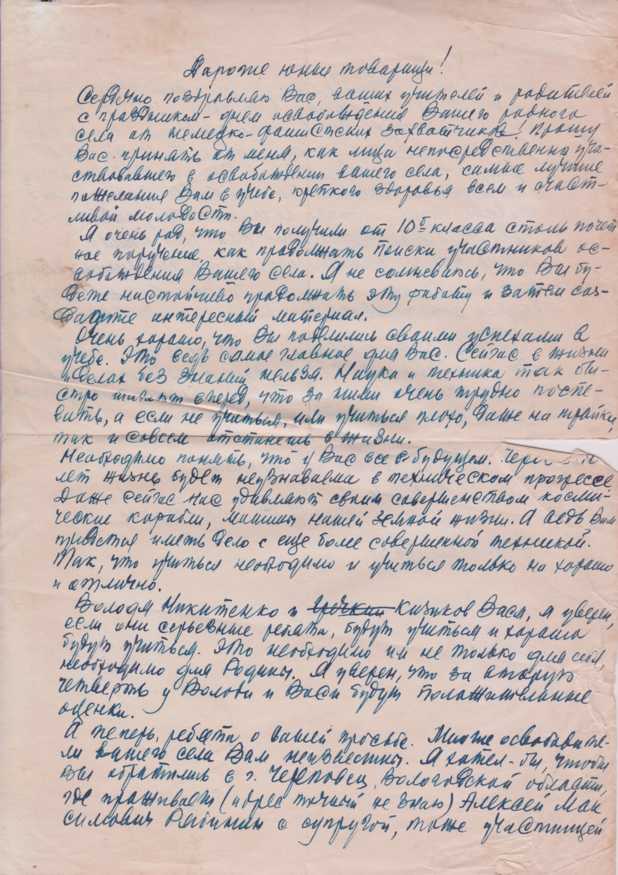 Дароже юные товарищи!
Сердечно поздровляю Вас, ваших учителей и родителей
с праздником - днем освобождения Вашего родного
села от немецко-фашистских захватчиков! Прошу
Вас принять от меня, как лица непосредственно уча-
ствовавшего в освобождении вашего села, самые лучшие
пожелания Вам в учебе, крепкого здоровья всем и счаст-
ливой молодости.
Я очень рад, что Вы получили от 10г класса столь почет
ное поручение, как продолжать поиски участников ос-
вобождения Вашего села. Я не сомневаюсь, что Вы бу-
дете настойчиво продолжать эту работу и затем соз-
дадите интересный материал.
Очень хорошо, что Вы поделились своими успехами в
учебе. Это ведь самое главное для Вас. Сейчас в жизни
и делах без знаний нельзя. Наука и техника так бы-
стро шагают вперед, что за ними очень трудно поспе-
вать, а если не учиться, или учиться плохо, даже на тройки,
так и совсем отстанешь в жизни.
Необходимо понять, что у Вас все в будущем. Через
лет жизнь будет неузнаваема в техническом прогрессе
Даже сейчас нас удивляют своим совершенством косми-
ческие корабли, машины нашей земной жизни. А ведь Вам
придется иметь дело с еще более совершенной техникой.
Так, что учиться необходимо и учиться только на хорошо
и отлично.
Володя Никитенко и Кизиков Вася, я уверен,
если они серьезные ребята, будут учиться и хорошо
будут учиться. Это необходимо им не только для себя,
необходимо для Родины. Я уверен, что за вторую
четверть у Володи и Васи будут положительные
оценки.
А теперь, ребята, о вашей просьбе. Многие освободите-
ли вашего села Вам неизвестны. Я хотел-бы, чтобы
Вы обратились в г. Череповец, Вологодской области,
где проживает (адрес точный не знаю) Алексей Мак
симович с супругой, тоже участницей